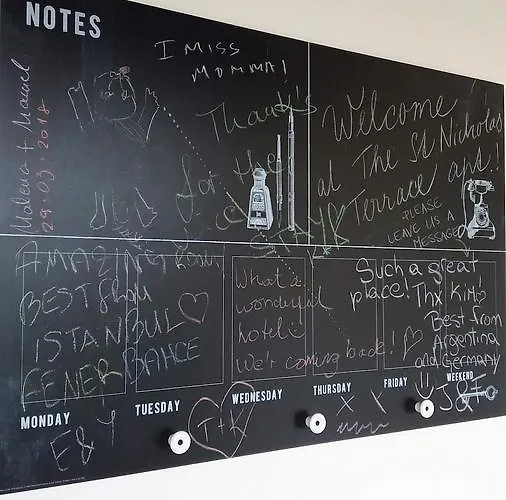 NOTES
I MISS
MOMMA!
29.03.2018
Thank's
for the
STAY
Welcome
at The St Nicholas
Terrace apt.!
PLEASE
LEAVE US A
MESSAGE
AMAZING
BEST from
ISTANBUL♡
FENER
BAHCE
What a
wonderful
hotel
We'r coming back! ♡
Such a great
place! Thx Kiki
Best from
Argentina
and Germany
J&
MONDAY
TUESDAY
WEDNESDAY
THURSDAY
FRIDAY
WEEKEND
E&Y
I+K